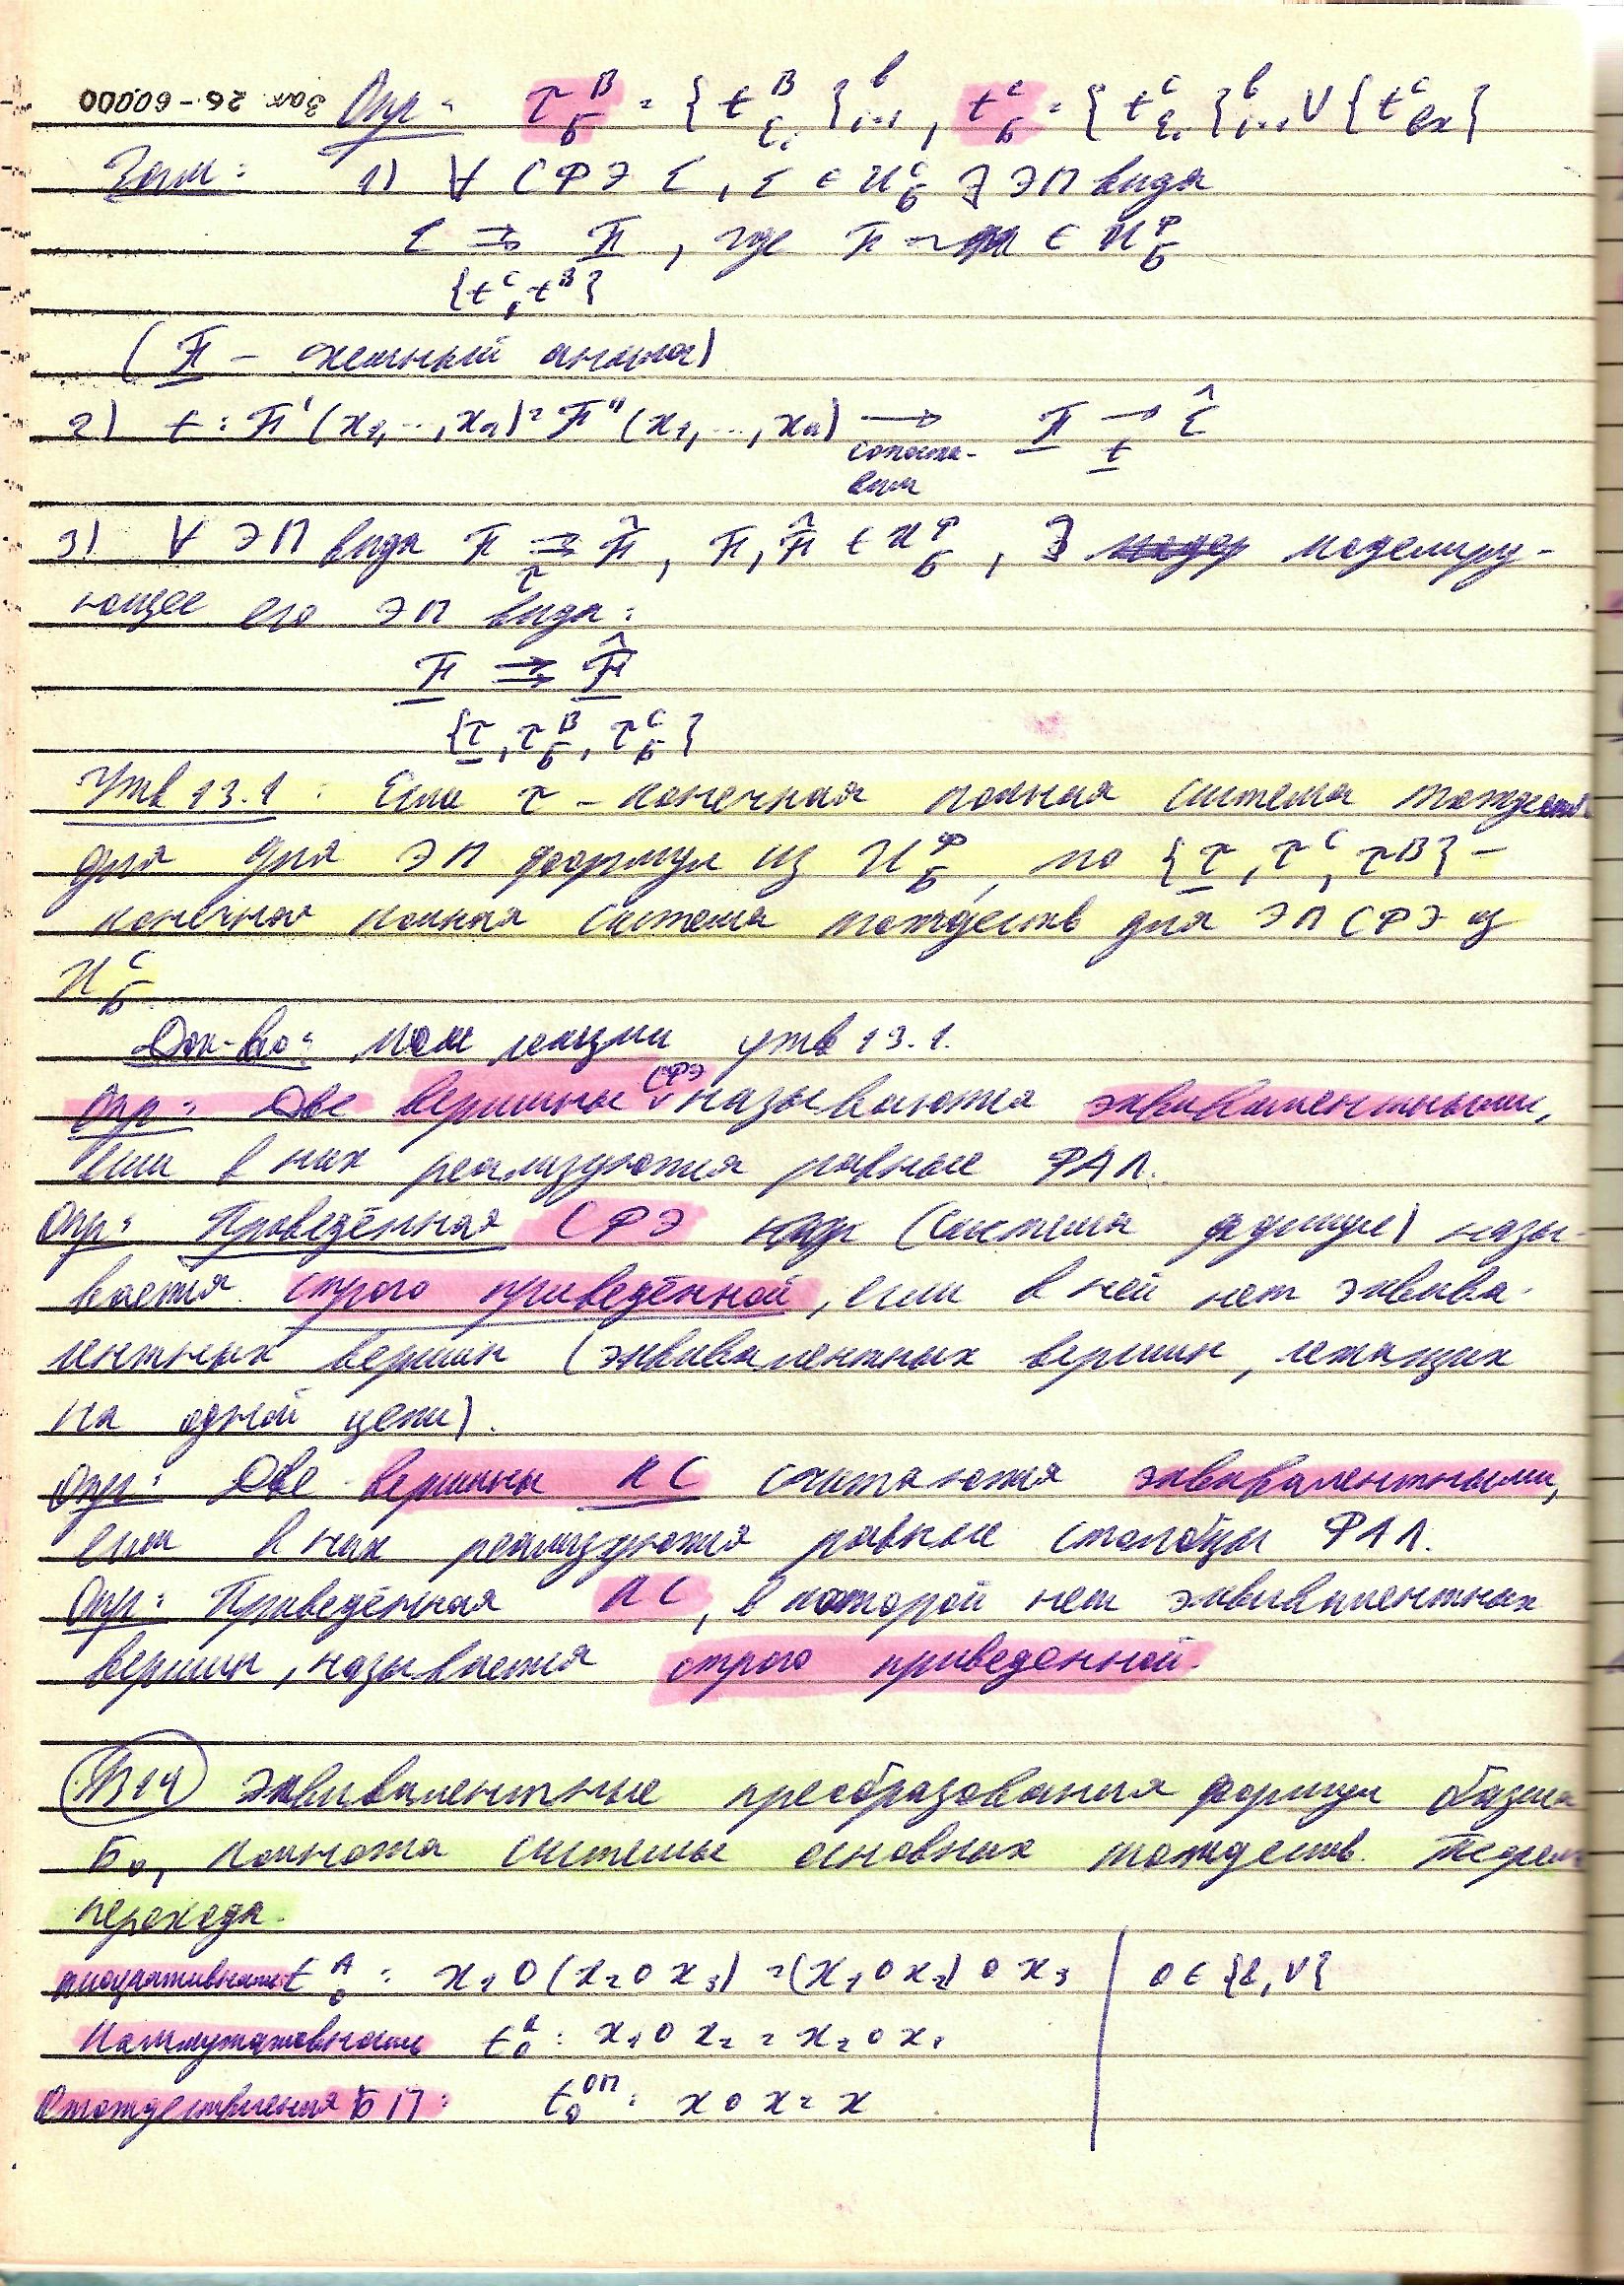 Зак. 26-60000
Опр: τ_Б^В = {t_{ε_i}^В}_{i=1}^b, t_Б^С = {t_{ε_i}^С}_{i=1}^b ∪ {t_{вх}^С}
Зам: 1) ∀ СФЭ Σ, Σ ∈ U_Б^С ∃ ЭП вида
Σ ⇒ F, где F ∈ U_Б^Ф
{t^С, t^В}
(F – схемный аналог)
2) t: F'(x_1,...,x_n) = F''(x_1,...,x_n) → F → Σ̂
сопоста- t
вим
3) ∀ ЭП вида F ⇒_τ F̂, F, F̂ ∈ U_Б^Ф, ∃ моделиру-
ющее его ЭП вида:
F ⇒ F̂
{τ, τ_Б^В, τ_Б^С}
Утв 13.1: Если τ – конечная полная система тождеств
для для ЭП формул из U_Б^Ф, то {τ, τ^С, τ^В} –
конечная полная система тождеств для ЭП СФЭ из
U_Б^С
Док-во: лекции утв 13.1.
Опр: Две вершины СФЭ называются эквивалентными,
если в них реализуются равные ФАЛ.
Опр: Приведённая СФЭ (система формул) назы-
вается строго приведённой, если в ней нет эквива-
лентных вершин (эквивалентных вершин, лежащих
на одной цепи).
Опр: Две вершины КС считаются эквивалентными,
если в них реализуются равные столбцы ФАЛ.
Опр: Приведённая КС, в которой нет эквивалентных
вершин, называется строго приведенной.
В14 Эквивалентные преобразования формул базиса
Б_0, полнота системы основных тождеств. Теорема
перехода.
ассоциативности t_o^A: x_1 o (x_2 o x_3) = (x_1 o x_2) o x_3 | o ∈ {&, ∨}
Коммутативности t_o^K: x_1 o x_2 = x_2 o x_1
Отождествления БП: t_o^{ОП}: x o x = x